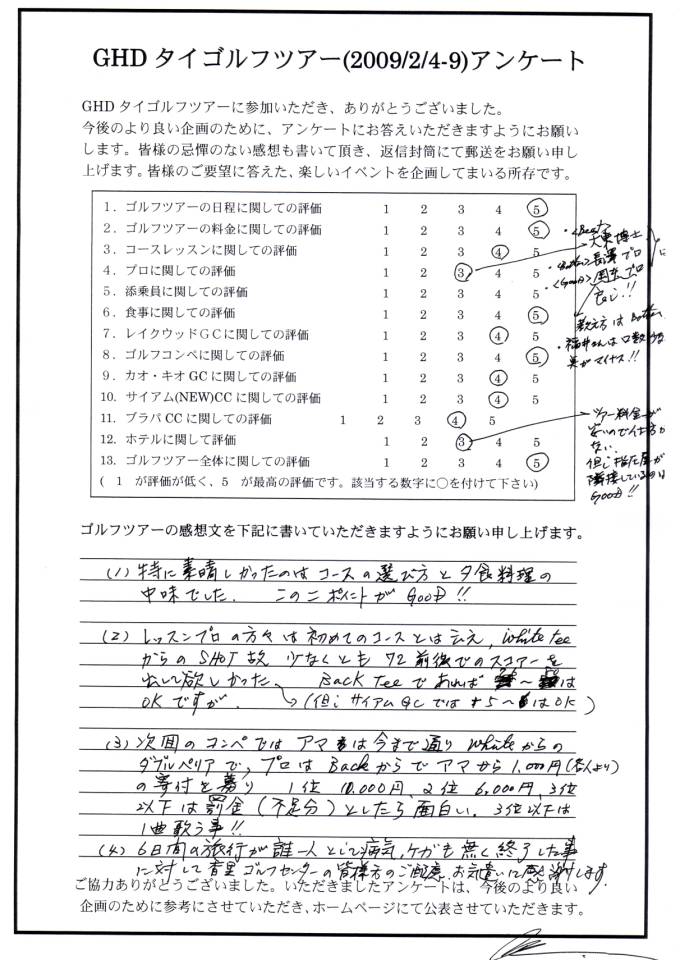 GHD タイゴルフツアー(2009/2/4-9)アンケート
GHD タイゴルフツアーに参加いただき、ありがとうございました。
今後のより良い企画のために、アンケートにお答えいただきますようにお願い
します。皆様の忌憚のない感想も書いて頂き、返信封筒にて郵送をお願い申し
上げます。皆様のご要望に答えた、楽しいイベントを企画してまいる所存です。
1．ゴルフツアーの日程に関しての評価 1 2 3 4 5
2．ゴルフツアーの料金に関しての評価 1 2 3 4 5
3．コースレッスンに関しての評価 1 2 3 4 5
4．プロに関しての評価 1 2 3 4 5
5．添乗員に関しての評価 1 2 3 4 5
6．食事に関しての評価 1 2 3 4 5
7．レイクウッドＧＣに関しての評価 1 2 3 4 5
8．ゴルフコンペに関しての評価 1 2 3 4 5
9．カオ・キオ GC に関しての評価 1 2 3 4 5
10．サイアム(NEW)CC に関しての評価 1 2 3 4 5
11．ブラパ CC に関しての評価 1 2 3 4 5
12．ホテルに関して評価 1 2 3 4 5
13．ゴルフツアー全体に関しての評価 1 2 3 4 5
( 1 が評価が低く、5 が最高の評価です。該当する数字に○を付けて下さい)
・<Best>
大東博士
プロ
・<GOOD>
プロ
良し!!
教え方は
・福井さんは口数
がマイナス!!
ツアー料金が
安いので仕方が
ない.
但し指圧屋が
隣接しているのは
GOOD!!
ゴルフツアーの感想文を下記に書いていただきますようにお願い申し上げます。
(1) 特に素晴しかったのはコースの選び方と夕食料理の
中味でした. この二ポイントが GOOD!!
(2) レッスンプロの方々は初めてのコースとは云え, White tee
からの SHOT 故 少なくとも 72 前後でのスコアーを
出して欲しかった. Back tee であれば ～ は
OK ですが. (但し サイアム GC では +5～ は OK)
(3) 次回のコンペでは アマは今まで通り White からの
ダブルペリアで, プロは Back からで アマから 1,000円(各人より)
の寄付を募り 1位 10,000円, 2位 6,000円, 3位
以下は罰金 (不足分) としたら面白い. 3位以下は
1曲歌う事!!
(4) 6日間の旅行が誰一人として病気, ケガも無く終了した事
に対して ゴルフセンターの皆様方のご配慮, お気遣いに感謝します.
ご協力ありがとうございました。いただきましたアンケートは、今後のより良い
企画のために参考にさせていただき、ホームページにて公表させていただきます。